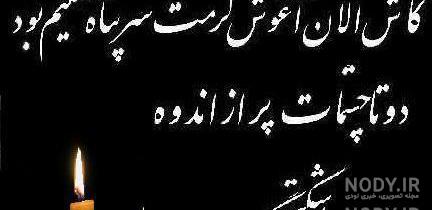 کاش الان آغوش گرمت سرپناه خستگیم بود
دو تا چشمات پر از اندوه
NODY.IR
مجله تصویری، خبری نودی
NODY.IR